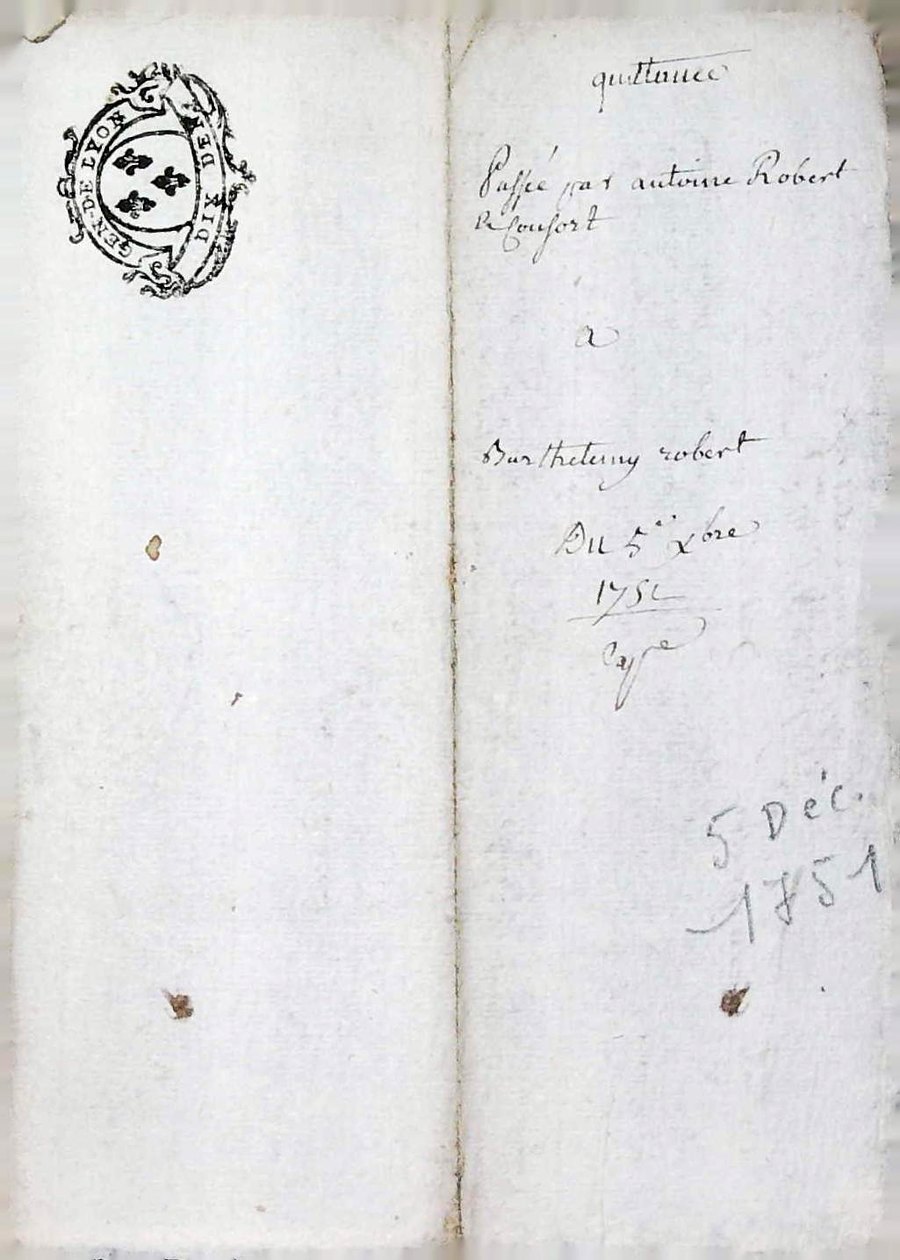 GEN. DE LYON
DIX DEN
quittance
Passée par antoine Robert
& Consort
a
Barthelemy robert
Du 5e xbre
1751
5 Déc.
1751